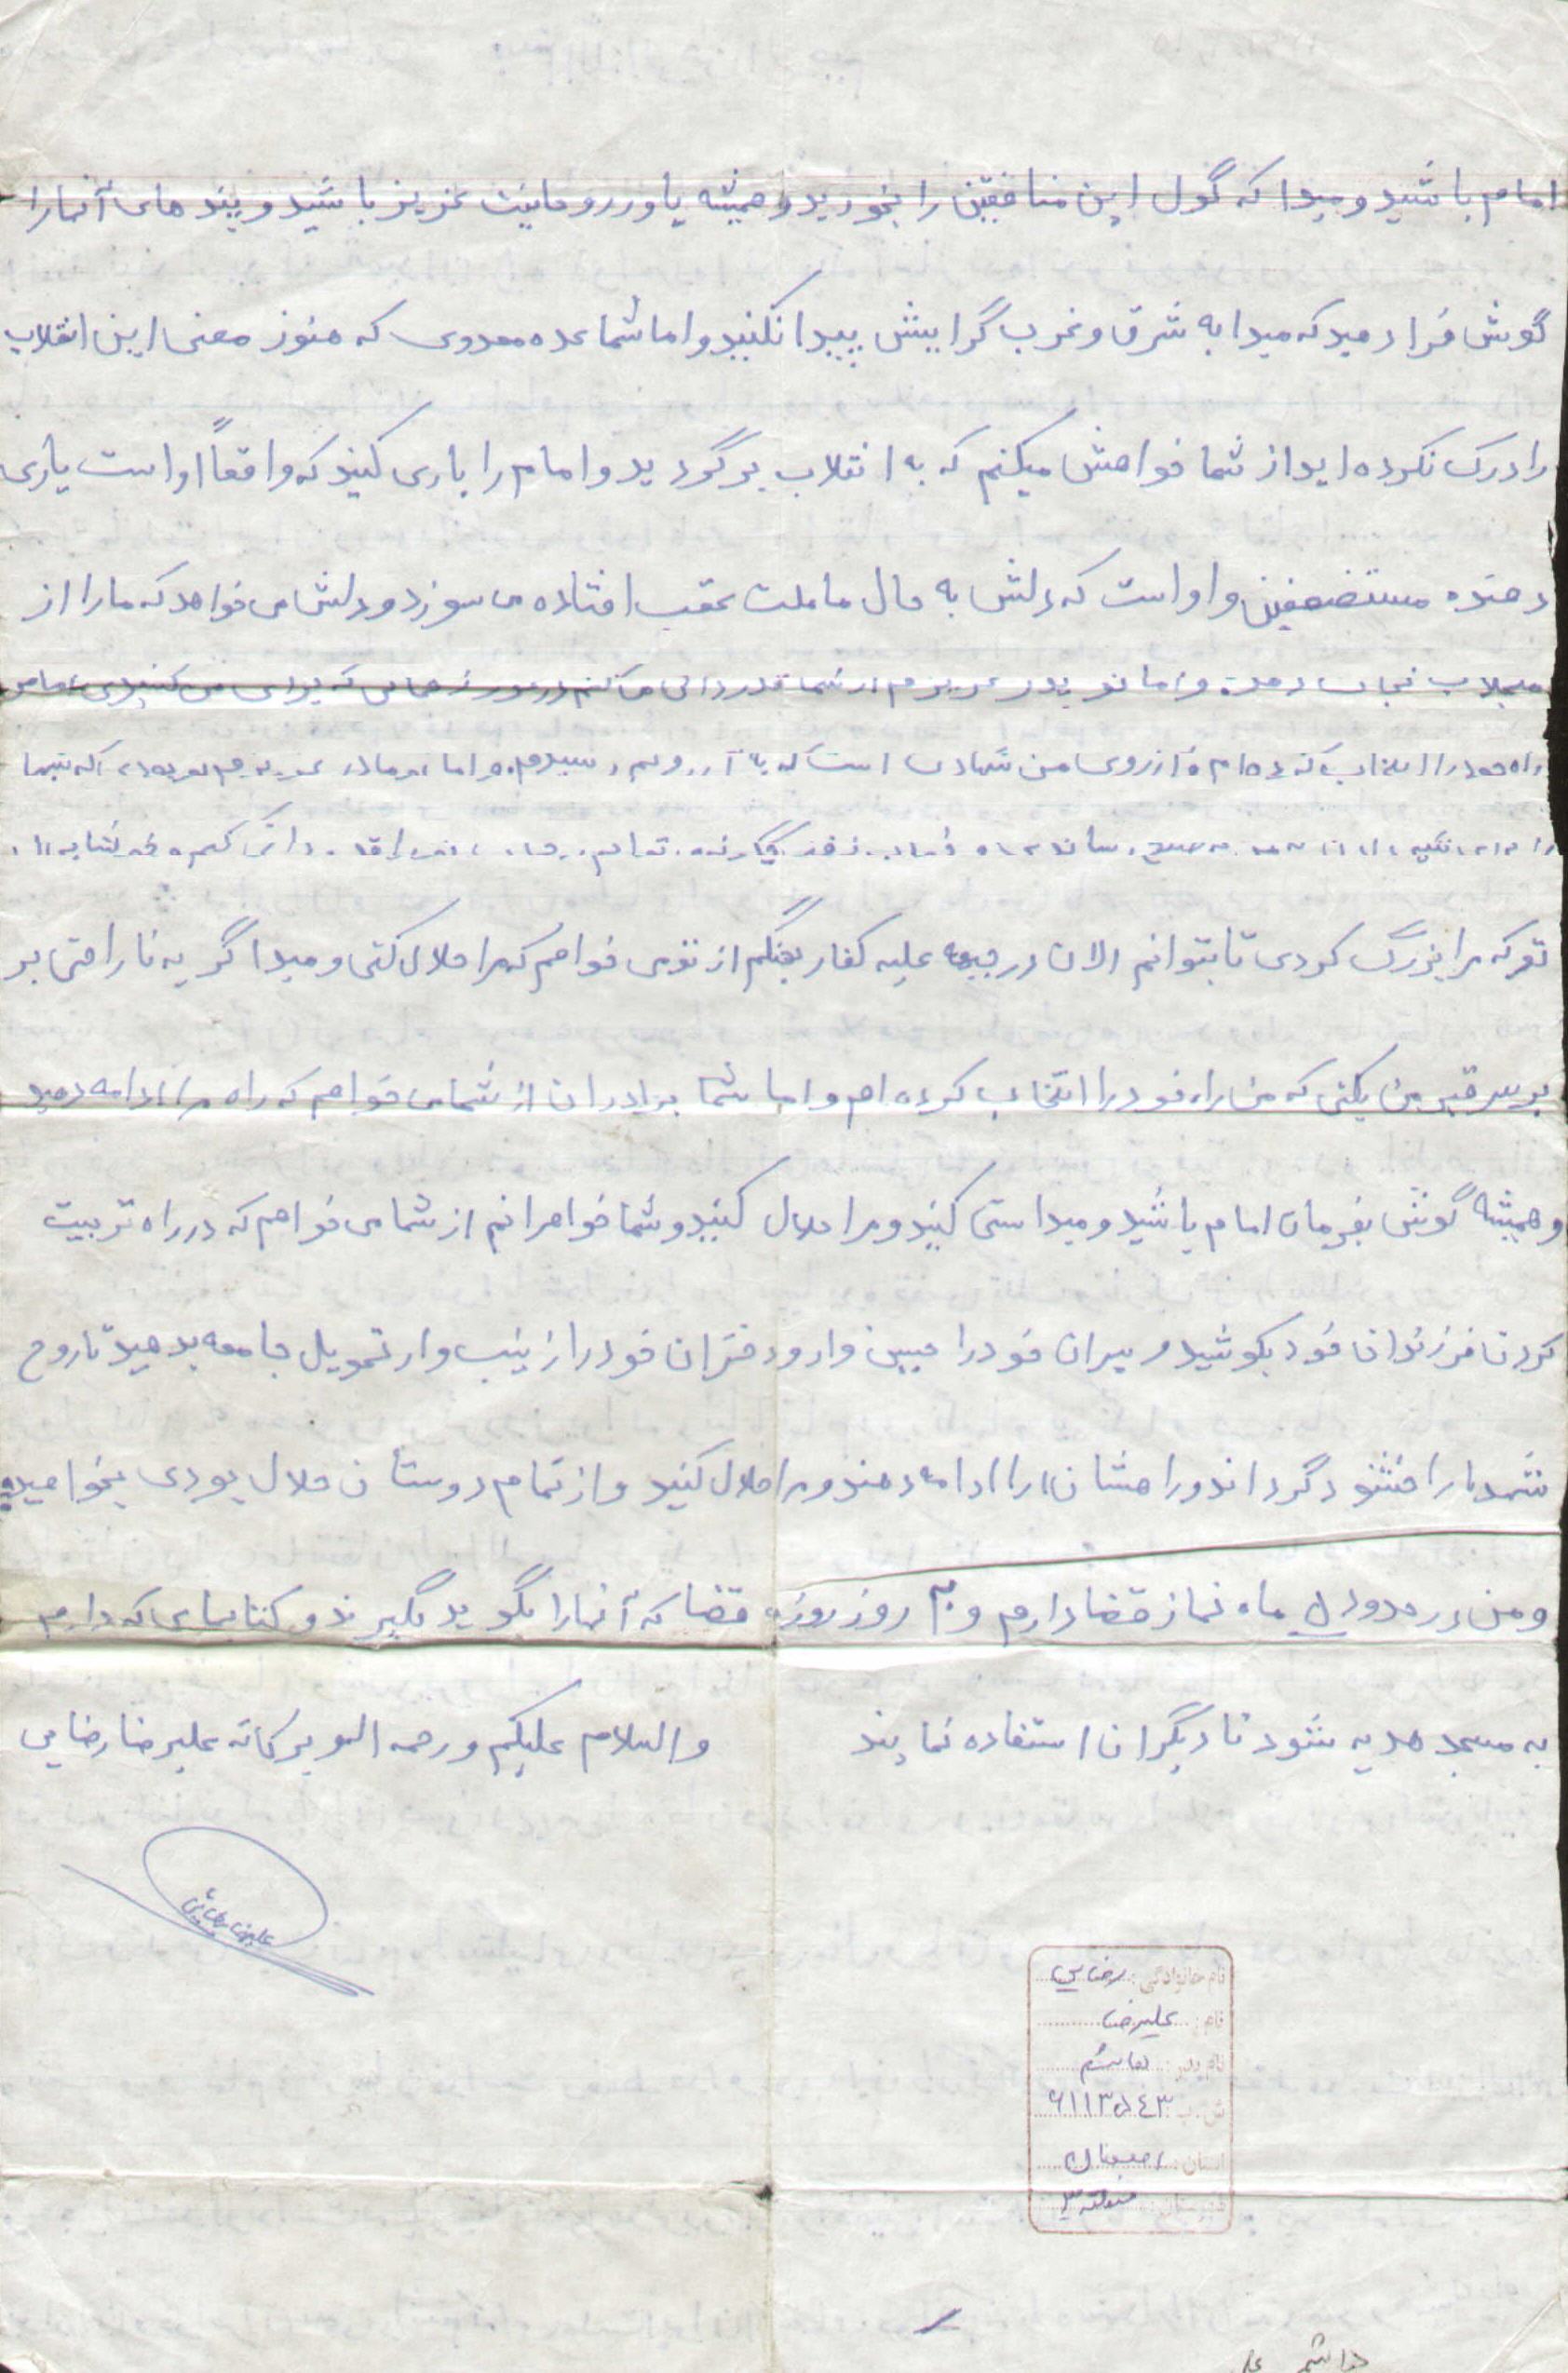 امام باشید و مبدا که گول این منافقین را بخورید و همیشه یاور روحانیت عزیز باشید و پندهای آنها را
گوش فرا دهید که مبدا به شرق و غرب گرایش پیدا نکنید و اما شما عده معدودی که هنوز معنی این انقلاب
را درک نکرده اید از شما خواهش میکنم که به انقلاب برگردید و امام را یاری کنید که واقعاً او است یاری
دهنده مستضعفین و او است که دلش به حال ما ملت عقب افتاده می سوزد و دلش می خواهد که ما را از
منجلاب نجات دهد و اما تو پدر عزیزم از شما قدردانی می کنم در مورد زحماتی که برای من کشیدی
راه خود را انتخاب کرده ام و آرزوی من شهادت است که به آرزویم رسیدم و اما تو مادر عزیزم
تو که مرا بزرگ کردی تا بتوانم الان در جبهه علیه کفار بجنگم از تو می خواهم که مرا حلال کنی و مبدا گریه ناراحتی بر
بر سر قبر من بکنی که من راه خود را انتخاب کرده ام و اما شما برادران از شما می خواهم که راه مرا ادامه دهید
و همیشه گوش بفرمان امام باشید و مبدا سستی کنید و مرا حلال کنید و شما خواهرانم از شما می خواهم که در راه تربیت
کردن فرزندان خود بکوشید و پسران خود را حسین وار و دختران خود را زینب وار تحویل جامعه بدهید تا روح
شهدا را خشنود گرداند و راهشان را ادامه دهند و مرا حلال کنید و از تمام دوستان حلال بودی بخواهید
و من در حدود ۵ ماه نماز قضا دارم و ۳۰ روز روزه قضا که آنها را بگوید بگیرند و کتابهای که دارم
به مسجد هدیه شود تا دیگران استفاده نمایند
والسلام علیکم و رحمه اله و برکاته علیرضا رضایی
علیرضا رضایی
نام خانوادگی: رضایی
نام: علیرضا
نام پدر: هاشم
ش. پ: ۶۱۱۳۵۴۳
استان: اصفهان
شهرستان: منطقه ۲
هاشم